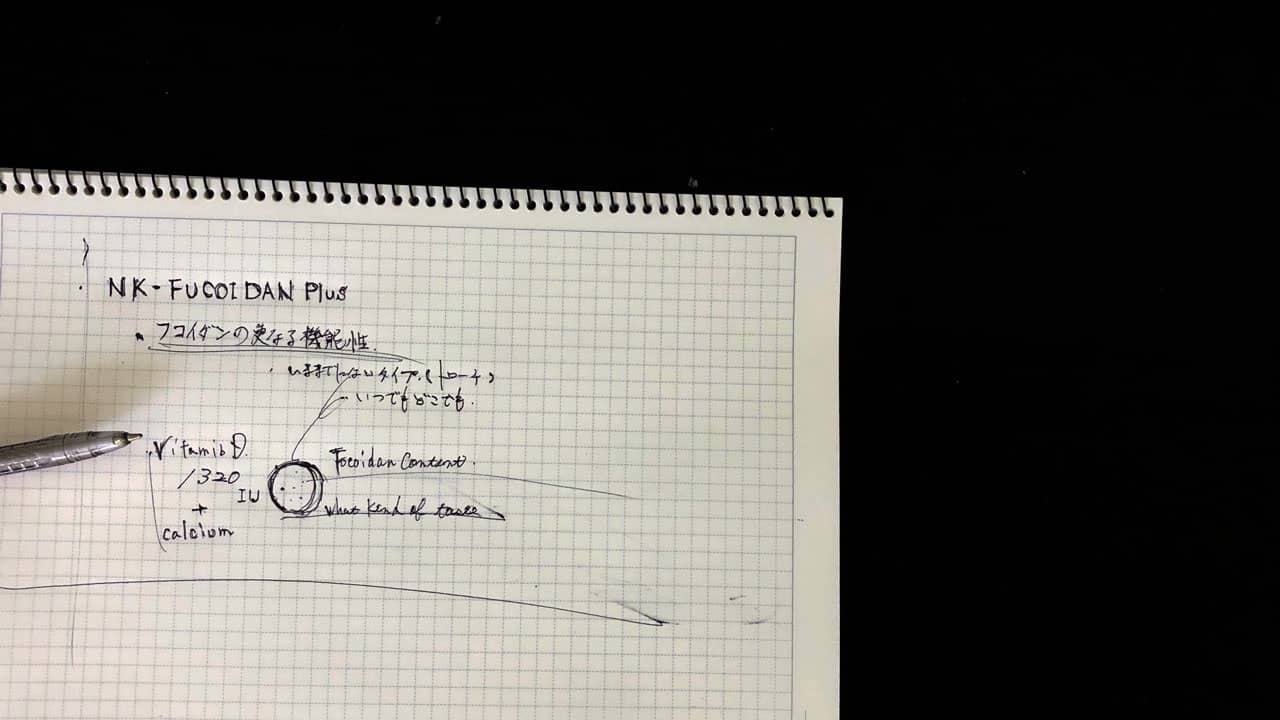 NK-FUCOIDAN Plus
フコイダンの更なる機能性
いままでにないタイプ(トローチ)
いつでもどこでも.
Vitamin D.
1320
IU
+
calcium
Fucoidan Content.
what kind of taste